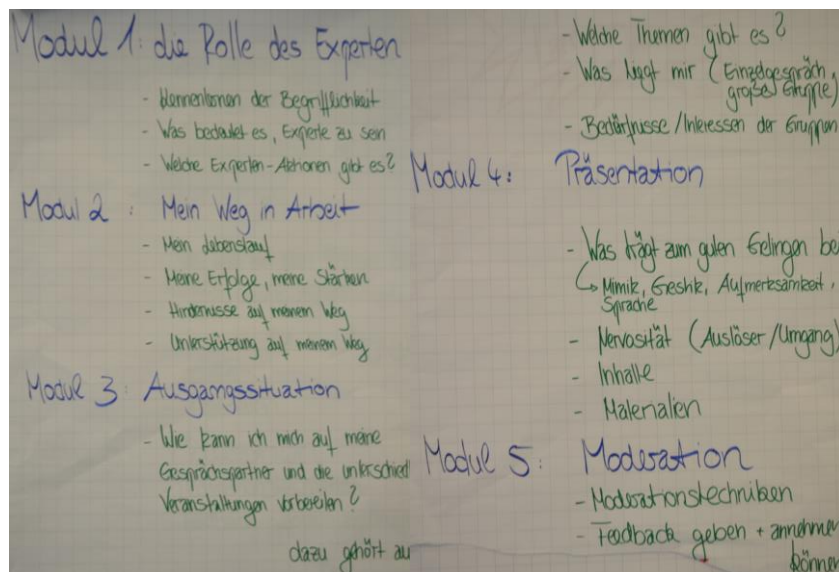 Modul 1: die Rolle des Experten
- Kennenlernen der Begrifflichkeit
- Was bedeutet es, Experte zu sein
- Welche Experten-Aktionen gibt es?
Modul 2 : Mein Weg in Arbeit
- Mein Lebenslauf
- Meine Erfolge, meine Stärken
- Hindernisse auf meinem Weg
- Unterstützung auf meinem Weg
Modul 3: Ausgangssituation
- Wie kann ich mich auf meine
Gesprächspartner und die unterschiedl
Veranstaltungen vorbereiten?
dazu gehört au
- Welche Themen gibt es?
- Was liegt mir (Einzelgespräch,
große Gruppe)
- Bedürfnisse/Interessen der Gruppen
Modul 4: Präsentation
- Was trägt zum guten Gelingen be
↳ Mimik, Gestik, Aufmerksamkeit,
Sprache
- Nervosität (Auslöser/Umgang)
- Inhalte
- Materialien
Modul 5: Moderation
- Moderationstechniken
- Feedback geben + annehmen
können